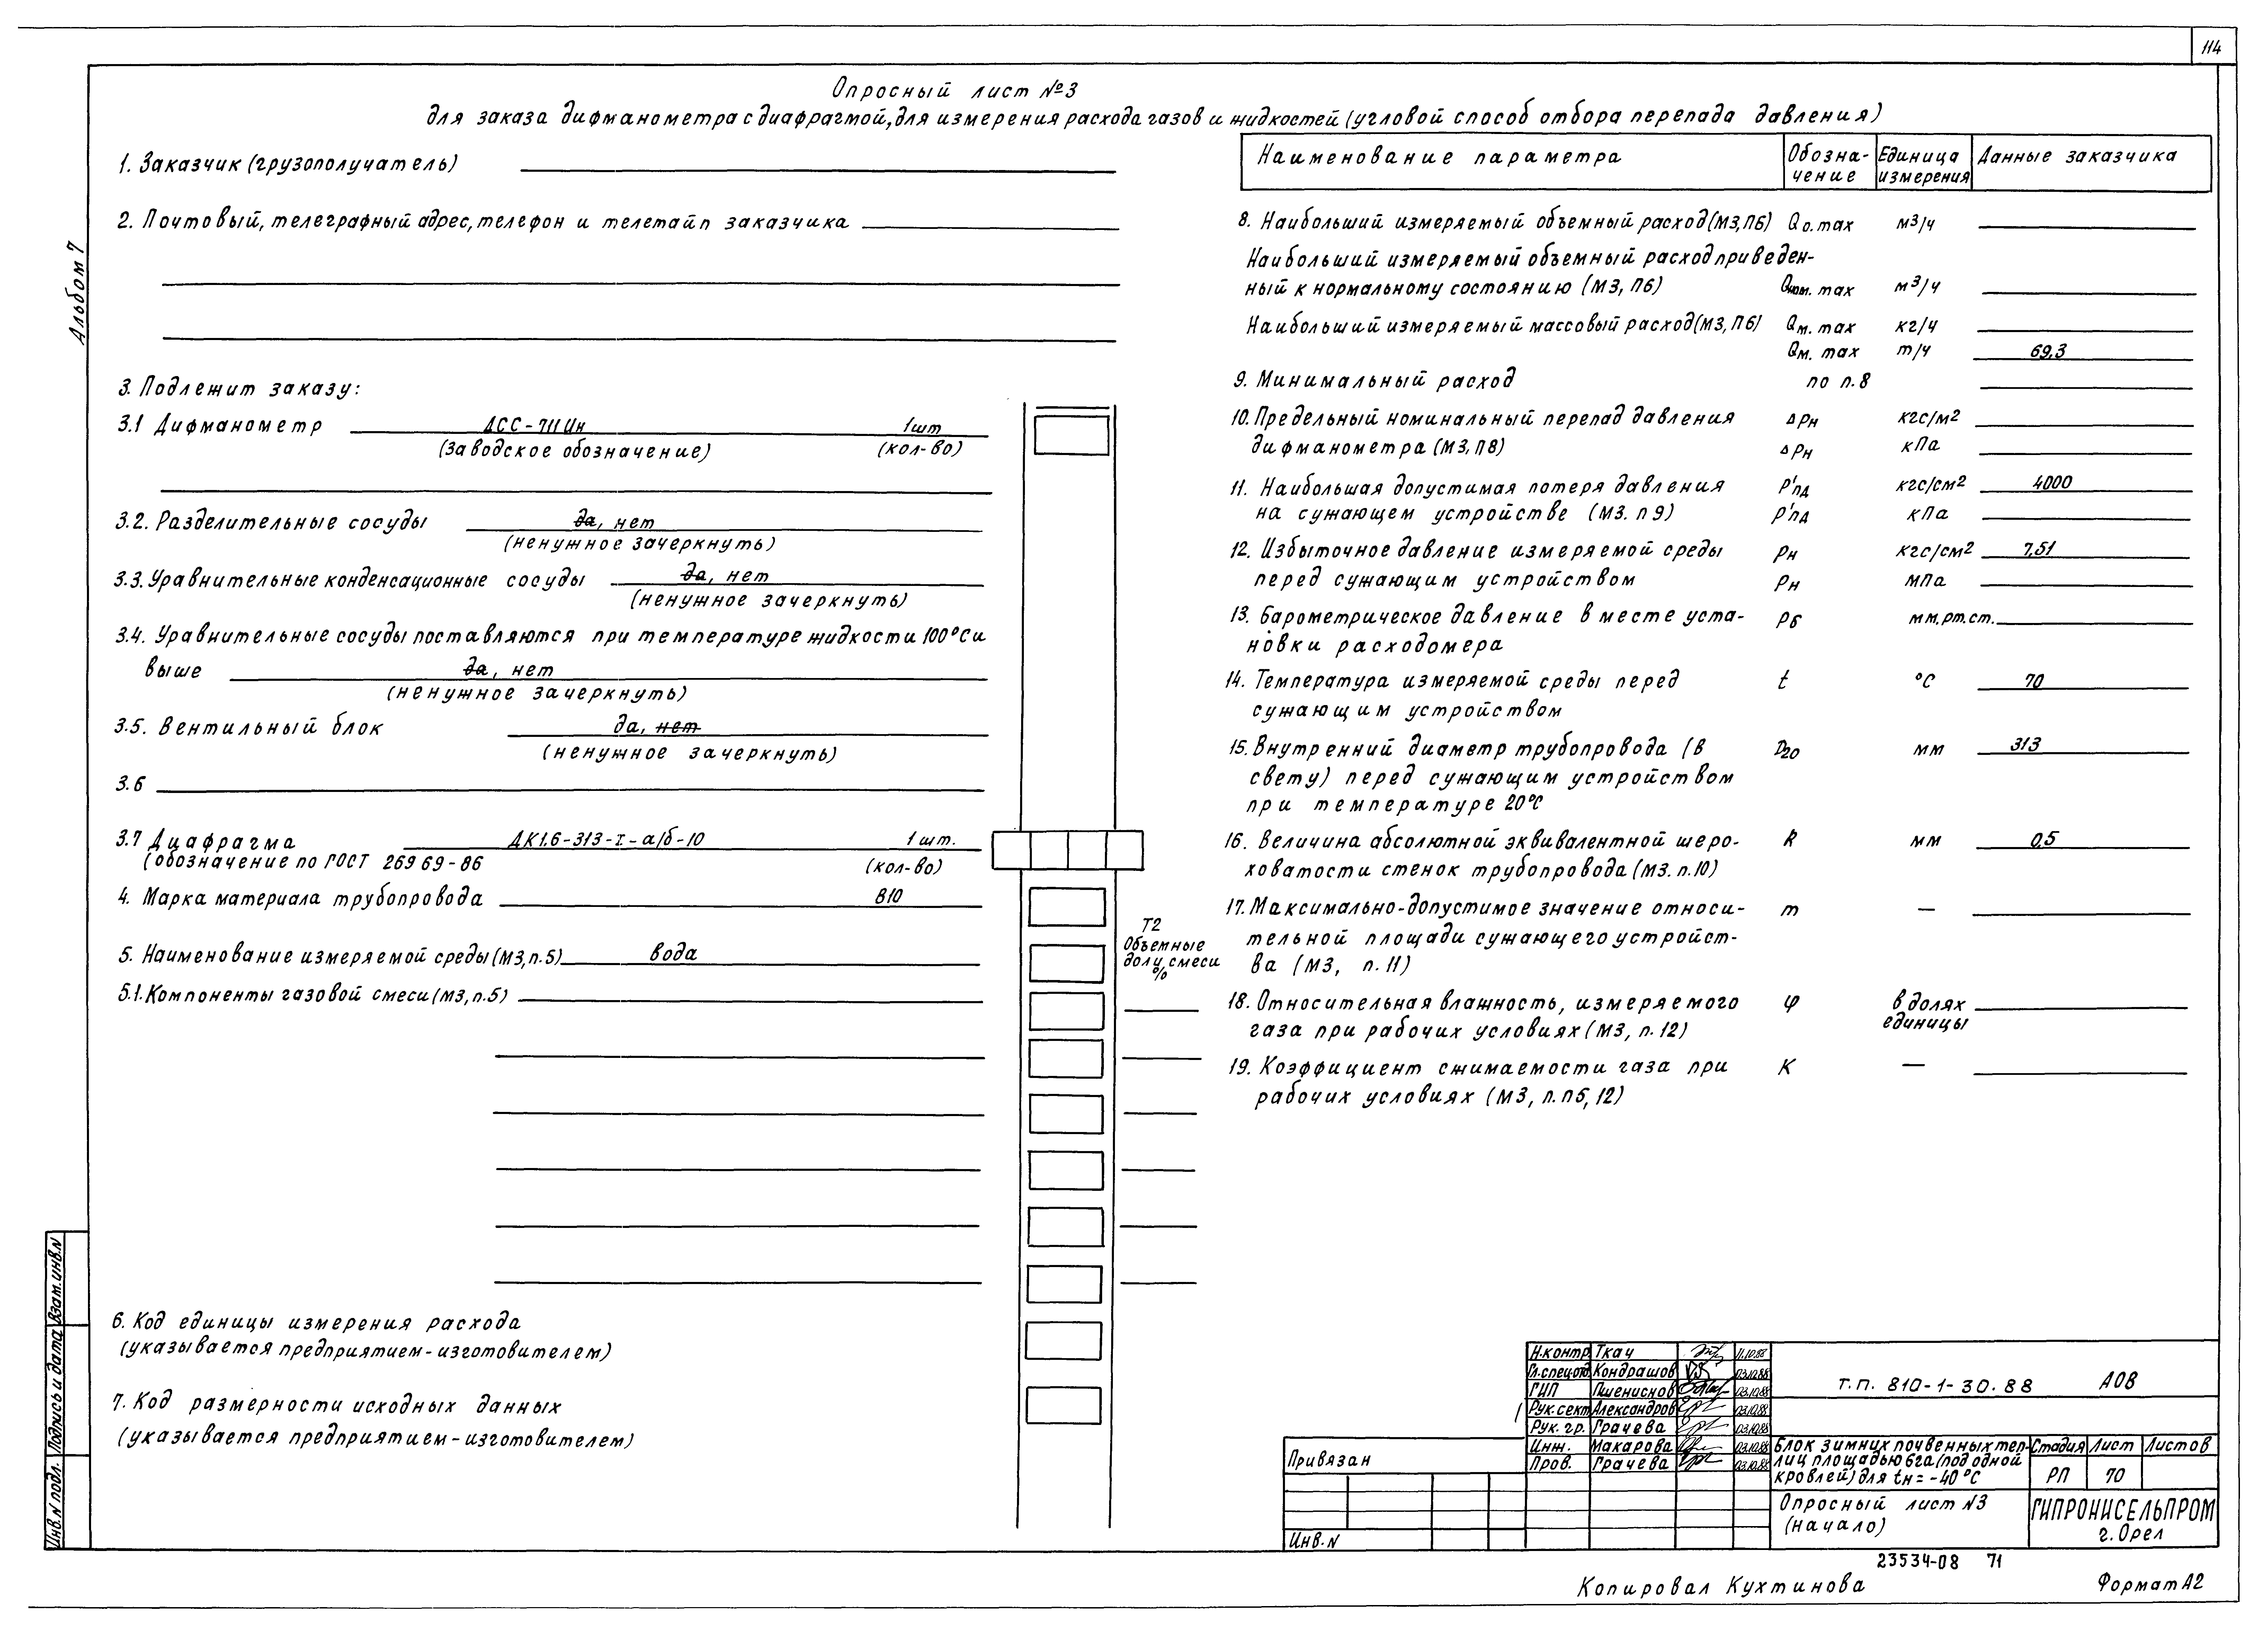 114
Опросный лист №3
для заказа дифманометра с диафрагмой, для измерения расхода газов и жидкостей (угловой способ отбора перепада давления)
Альбом 7
1. Заказчик (грузополучатель)
2. Почтовый, телеграфный адрес, телефон и телетайп заказчика
3. Подлежит заказу:
3.1 Дифманометр ДСС-711Ин 1шт
(заводское обозначение) (кол-во)
3.2. Разделительные сосуды да, нет
(ненужное зачеркнуть)
3.3. Уравнительные конденсационные сосуды да, нет
(ненужное зачеркнуть)
3.4. Уравнительные сосуды поставляются при температуре жидкости 100°С и
выше да, нет
(ненужное зачеркнуть)
3.5. Вентильный блок да, нет
(ненужное зачеркнуть)
3.6
3.7 Диафрагма ДК1.6-313-I-а/б-10 1 шт.
(обозначение по ГОСТ 26969-86 (кол-во)
4. Марка материала трубопровода В10
5. Наименование измеряемой среды (М3, п.5) вода
5.1. Компоненты газовой смеси (М3, п.5)
Т2
Объемные
доли смеси
%
6. Код единицы измерения расхода
(указывается предприятием-изготовителем)
7. Код размерности исходных данных
(указывается предприятием-изготовителем)
Наименование параметра Обозна- Единица Данные заказчика
чение измерения
8. Наибольший измеряемый объемный расход (М3, П6) Qо.max м3/ч
Наибольший измеряемый объемный расход приведен-
ный к нормальному состоянию (М3, П6) Qном. max м3/ч
Наибольший измеряемый массовый расход (М3, П6) Qм. max кг/ч
Qм. max т/ч 69,3
9. Минимальный расход по п.8
10. Предельный номинальный перепад давления ΔPн кгс/м2
дифманометра (М3, П8) ΔPн кПа
11. Наибольшая допустимая потеря давления P'пд кгс/см2 4000
на сужающем устройстве (М3. п 9) P'пд кПа
12. Избыточное давление измеряемой среды Pн кгс/см2 7,51
перед сужающим устройством Pн МПа
13. Барометрическое давление в месте уста- Pб мм.рт.ст.
новки расходомера
14. Температура измеряемой среды перед t °С 70
сужающим устройством
15. Внутренний диаметр трубопровода (в D20 мм 313
свету) перед сужающим устройством
при температуре 20°С
16. Величина абсолютной эквивалентной шеро- R мм 0,5
ховатости стенок трубопровода (М3. п.10)
17. Максимально-допустимое значение относи- m —
тельной площади сужающего устройст-
ва (М3, п. 11)
18. Относительная влажность, измеряемого φ в долях
газа при рабочих условиях (М3, п. 12) единицы
19. Коэффициент сжимаемости газа при K —
рабочих условиях (М3, п.п5, 12)
Н.контр. Ткач 11.10.88
Гл.спец.отд. Кондрашов 03.10.88
ГИП Пшениснов 03.10.88
Рук. сект. Александров 03.10.88
Рук. гр. Грачева 03.10.88
Инж. Макарова 03.10.88
Пров. Грачева 03.10.88
т.п. 810-1-30.88 А08
Блок зимних почвенных теп-
лиц площадью 6га (под одной
кровлей) для tн = -40°С
Стадия Лист Листов
РП 70
Опросный лист N3
(начало)
ГИПРОНИСЕЛЬПРОМ
г. Орел
Привязан
Инв. N
Взам. инв. N
Подпись и дата
Инв. N подл.
23534-08 71
Копировал Кухтинова
Формат А2